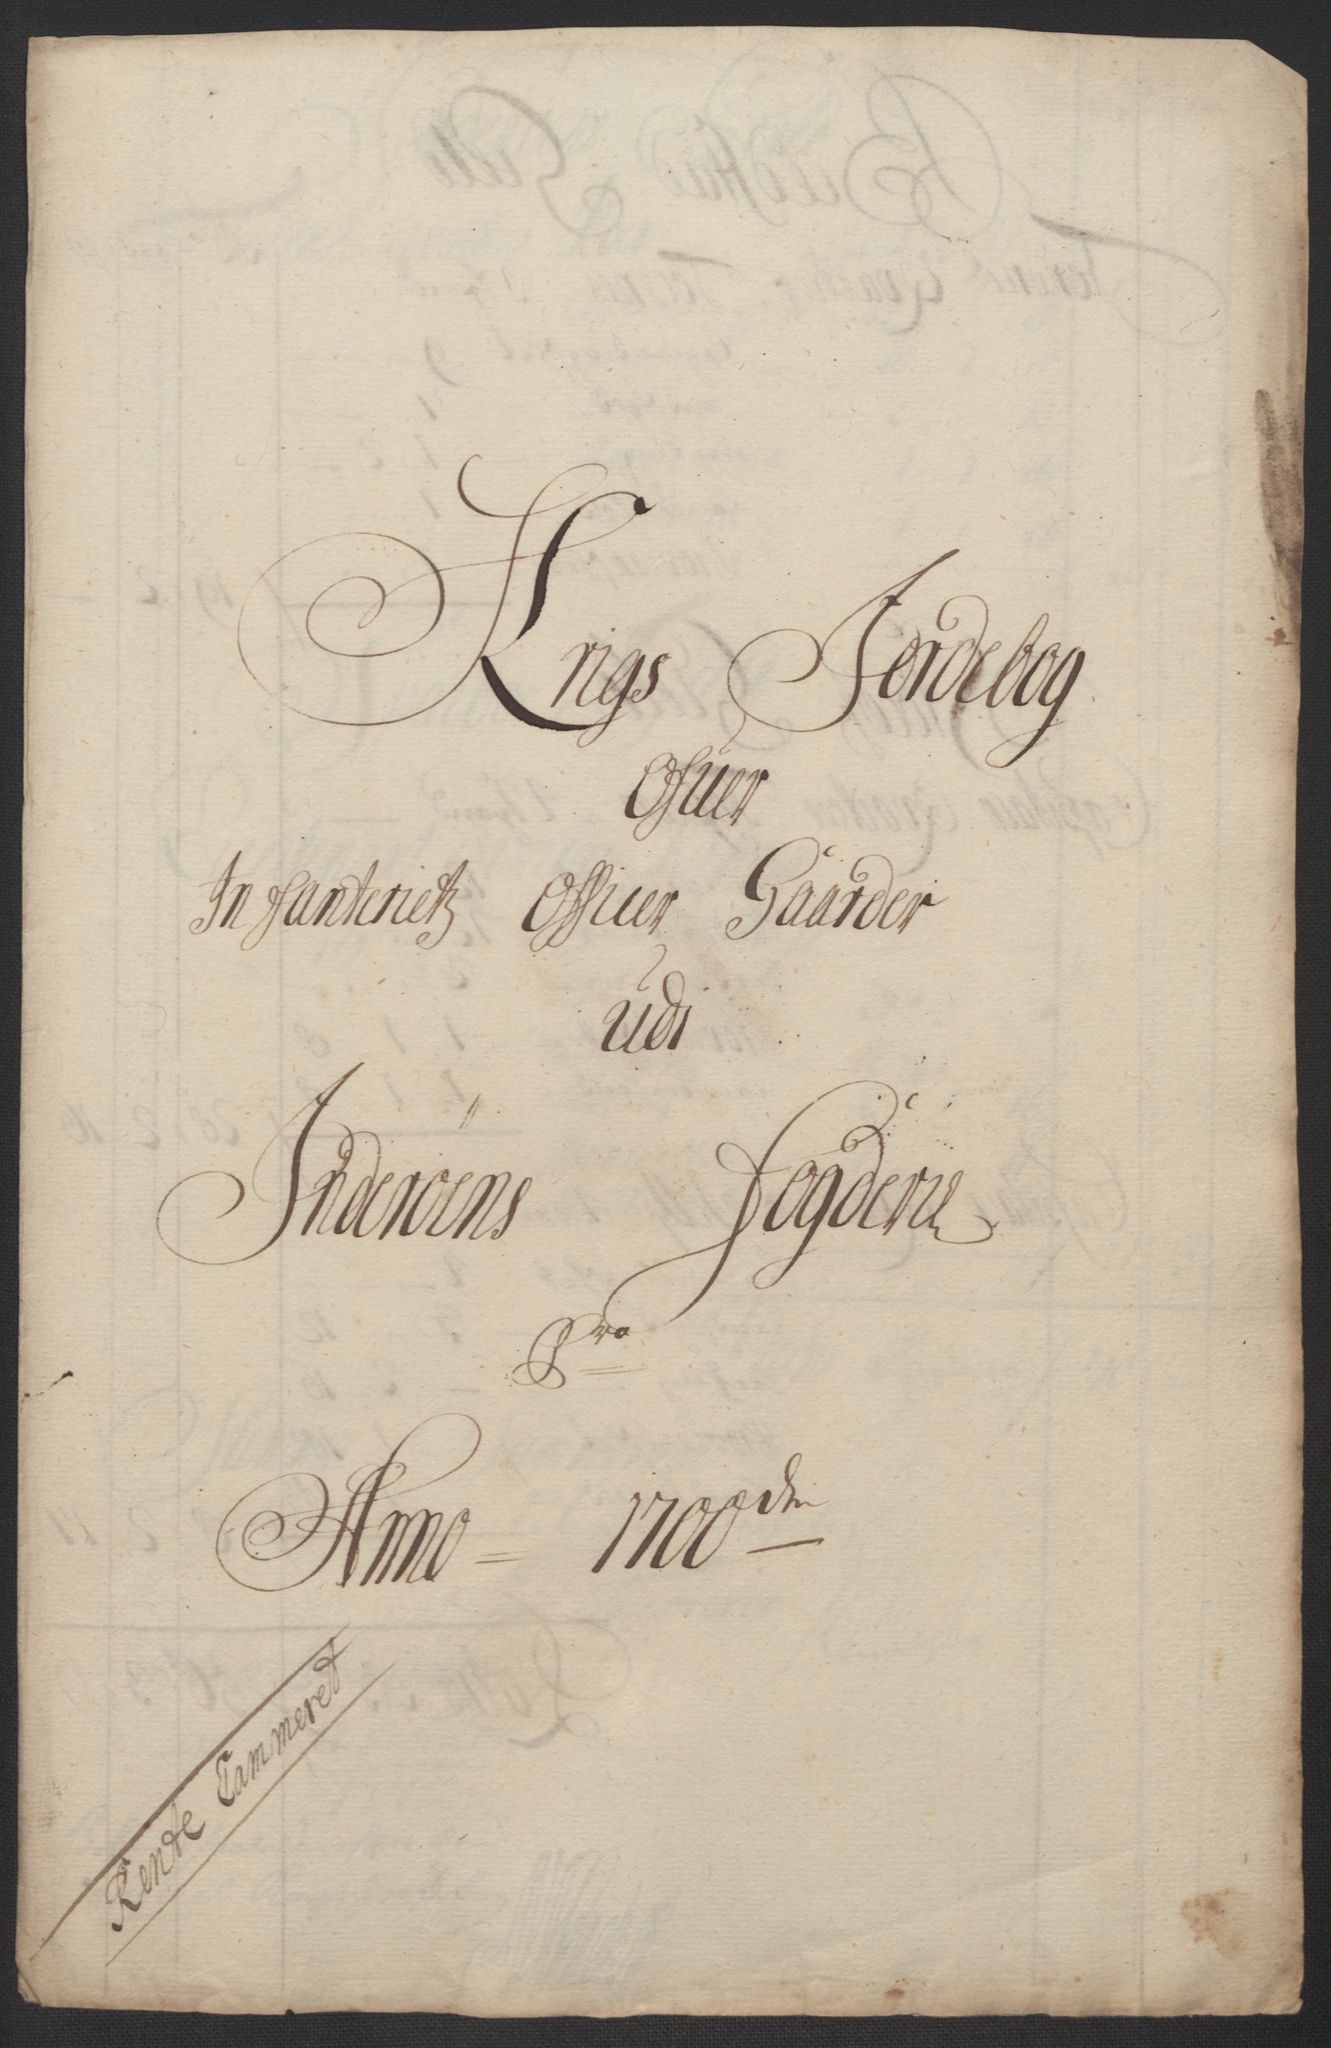 Krigs Jordebog
Ofuer
Infanterietz Officer Gaarder
Udi
Inderöens Fogderie
Pro
Anno = 1700den
Rente Cammeret